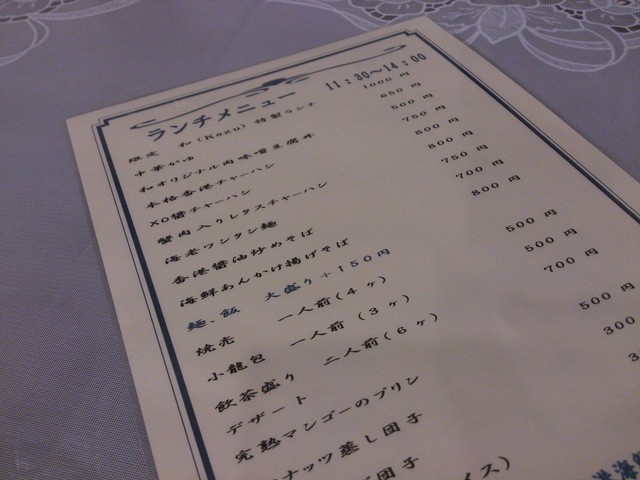 ランチメニュー 11:30～14:00
限定 和(Kazu)特製ランチ 1000円
中華がゆ 650円
和オリジナル肉味噌豆腐丼 500円
本格香港チャーハン 750円
XO醬チャーハン 800円
蟹肉入りレタスチャーハン 800円
海老ワンタン麺 750円
香港醤油炒めそば 700円
海鮮あんかけ揚げそば 800円
麺、飯 大盛り+150円
焼売 一人前(4ヶ) 500円
小龍包 一人前(3ヶ) 500円
飲茶盛り 二人前(6ヶ) 700円
デザート
完熟マンゴーのプリン 500円
ナッツ蒸し団子 300
団子 3
イス)